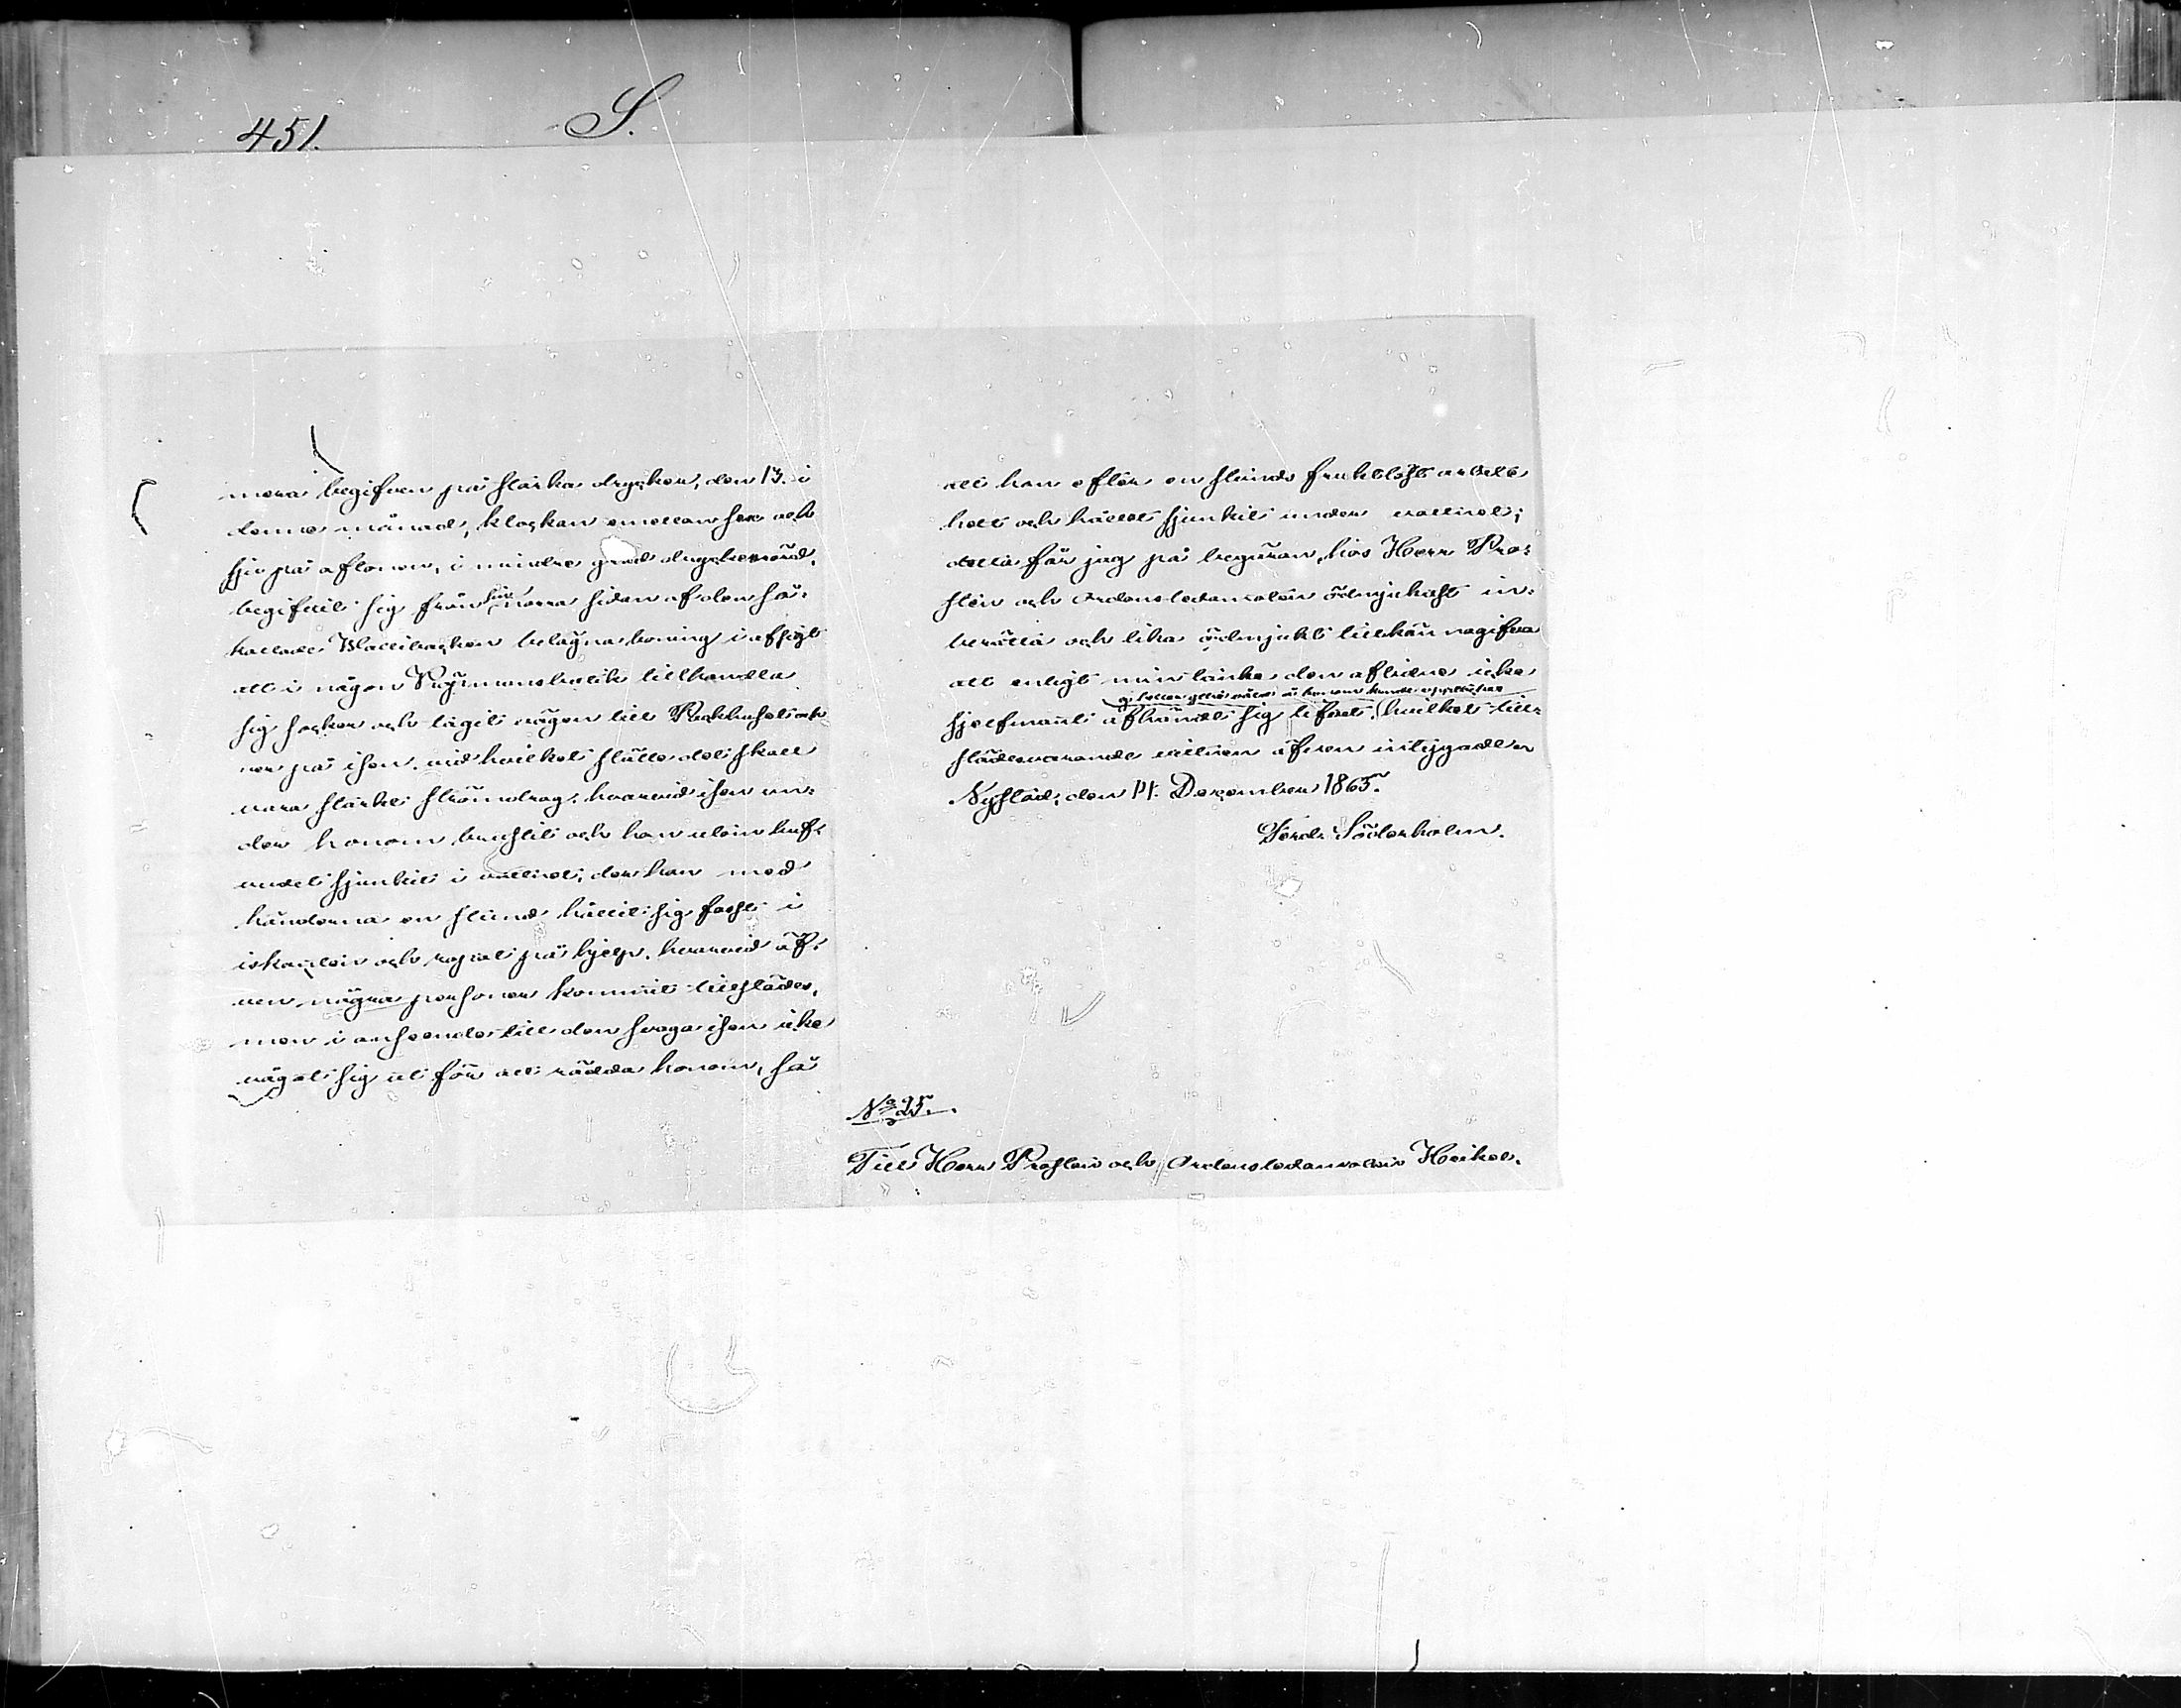 451.
S.
mera begifven på starka drycker, den 13. i
denne månad, klockan emellan sex och
sju på aftonen, i mindre grad druckenrörd,
begifvit sig från sin å norra sidan af den så
kallade Wallibacken belägna koning i afsigt
att i någon Viktualiebutik tillhandla
sig socker och tagit vägen till
ner på isen, vid hvilket ställe det skall
vara starkt strömdrag, hvarvid isen un-
der honom brustit och han utom huf-
vudet sjunkit i vattnet; der han med
händerna en stund hållit sig fast i
iskanten och ropat på hjelp, hvarvid äf-
ven några personer kommit tillstädes,
men i anseende till den svaga isen icke
vågat sig ut för att rädda honom, så
att han efter en stunds fruktlöst arbete
helt och hållet sjunkit under vattnet;
detta får jag på begäran, hos Herr Pro-
sten och Ordensledamoten ödmjukast in-
berätta och lika ödmjukt tillkännagifva
att enligt min tanke den aflidne icke
ej heller yttre våld å honom kunde upptäckas
sjelfmant afhändt sig lifvet, hvilket till-
städesvarande vittnen äfven intygade.
Nystad, den 14. December 1865.
Ferd. Söderholm.
No 95.
Till Herr Prosten och Ordensledamoten Heikel.